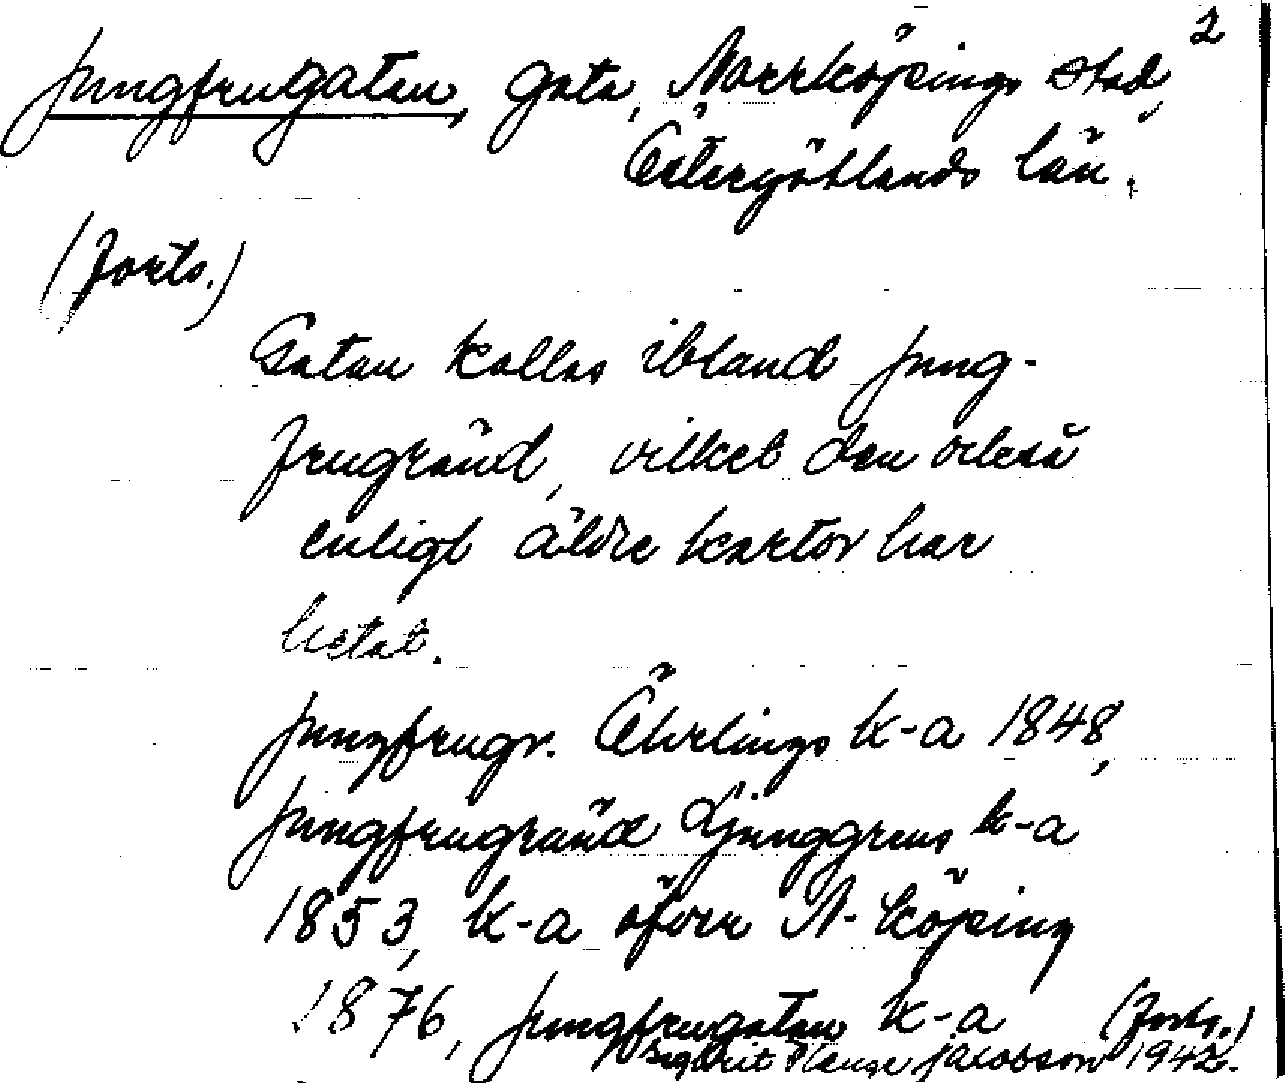 2
Jungfrugatan, gata, Norrköpings stad,
Östergötlands län.
(Forts.)
Gatan kallas ibland Jung-
frugränd, vilket den också
enligt äldre kartor har
hetat.
Jungfrugr. Öhrlings k-a 1848,
Jungfrugränd Ljunggrens k-a
1853, k-a öfver N-köping
1876, Jungfrugatan k-a (Forts.)
Jacobson 1942.